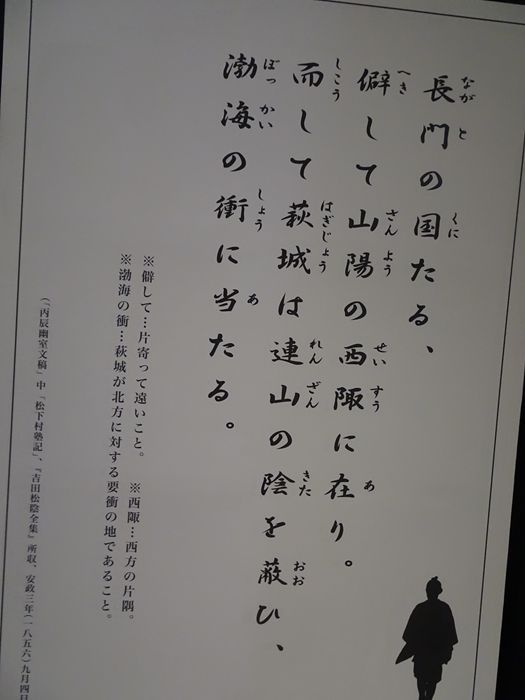 長門の国たる、
僻して山陽の西陬に在り。
而して萩城は連山の陰を蔽ひ、
渤海の衝に当たる。
※僻して…片寄って遠いこと。 ※西陬…西方の片隅。
※渤海の衝…萩城が北方に対する要衝の地であること。
(「丙辰幽室文稿」中「松下村塾記」、『吉田松陰全集』所収、安政三年(一八五六)九月四日